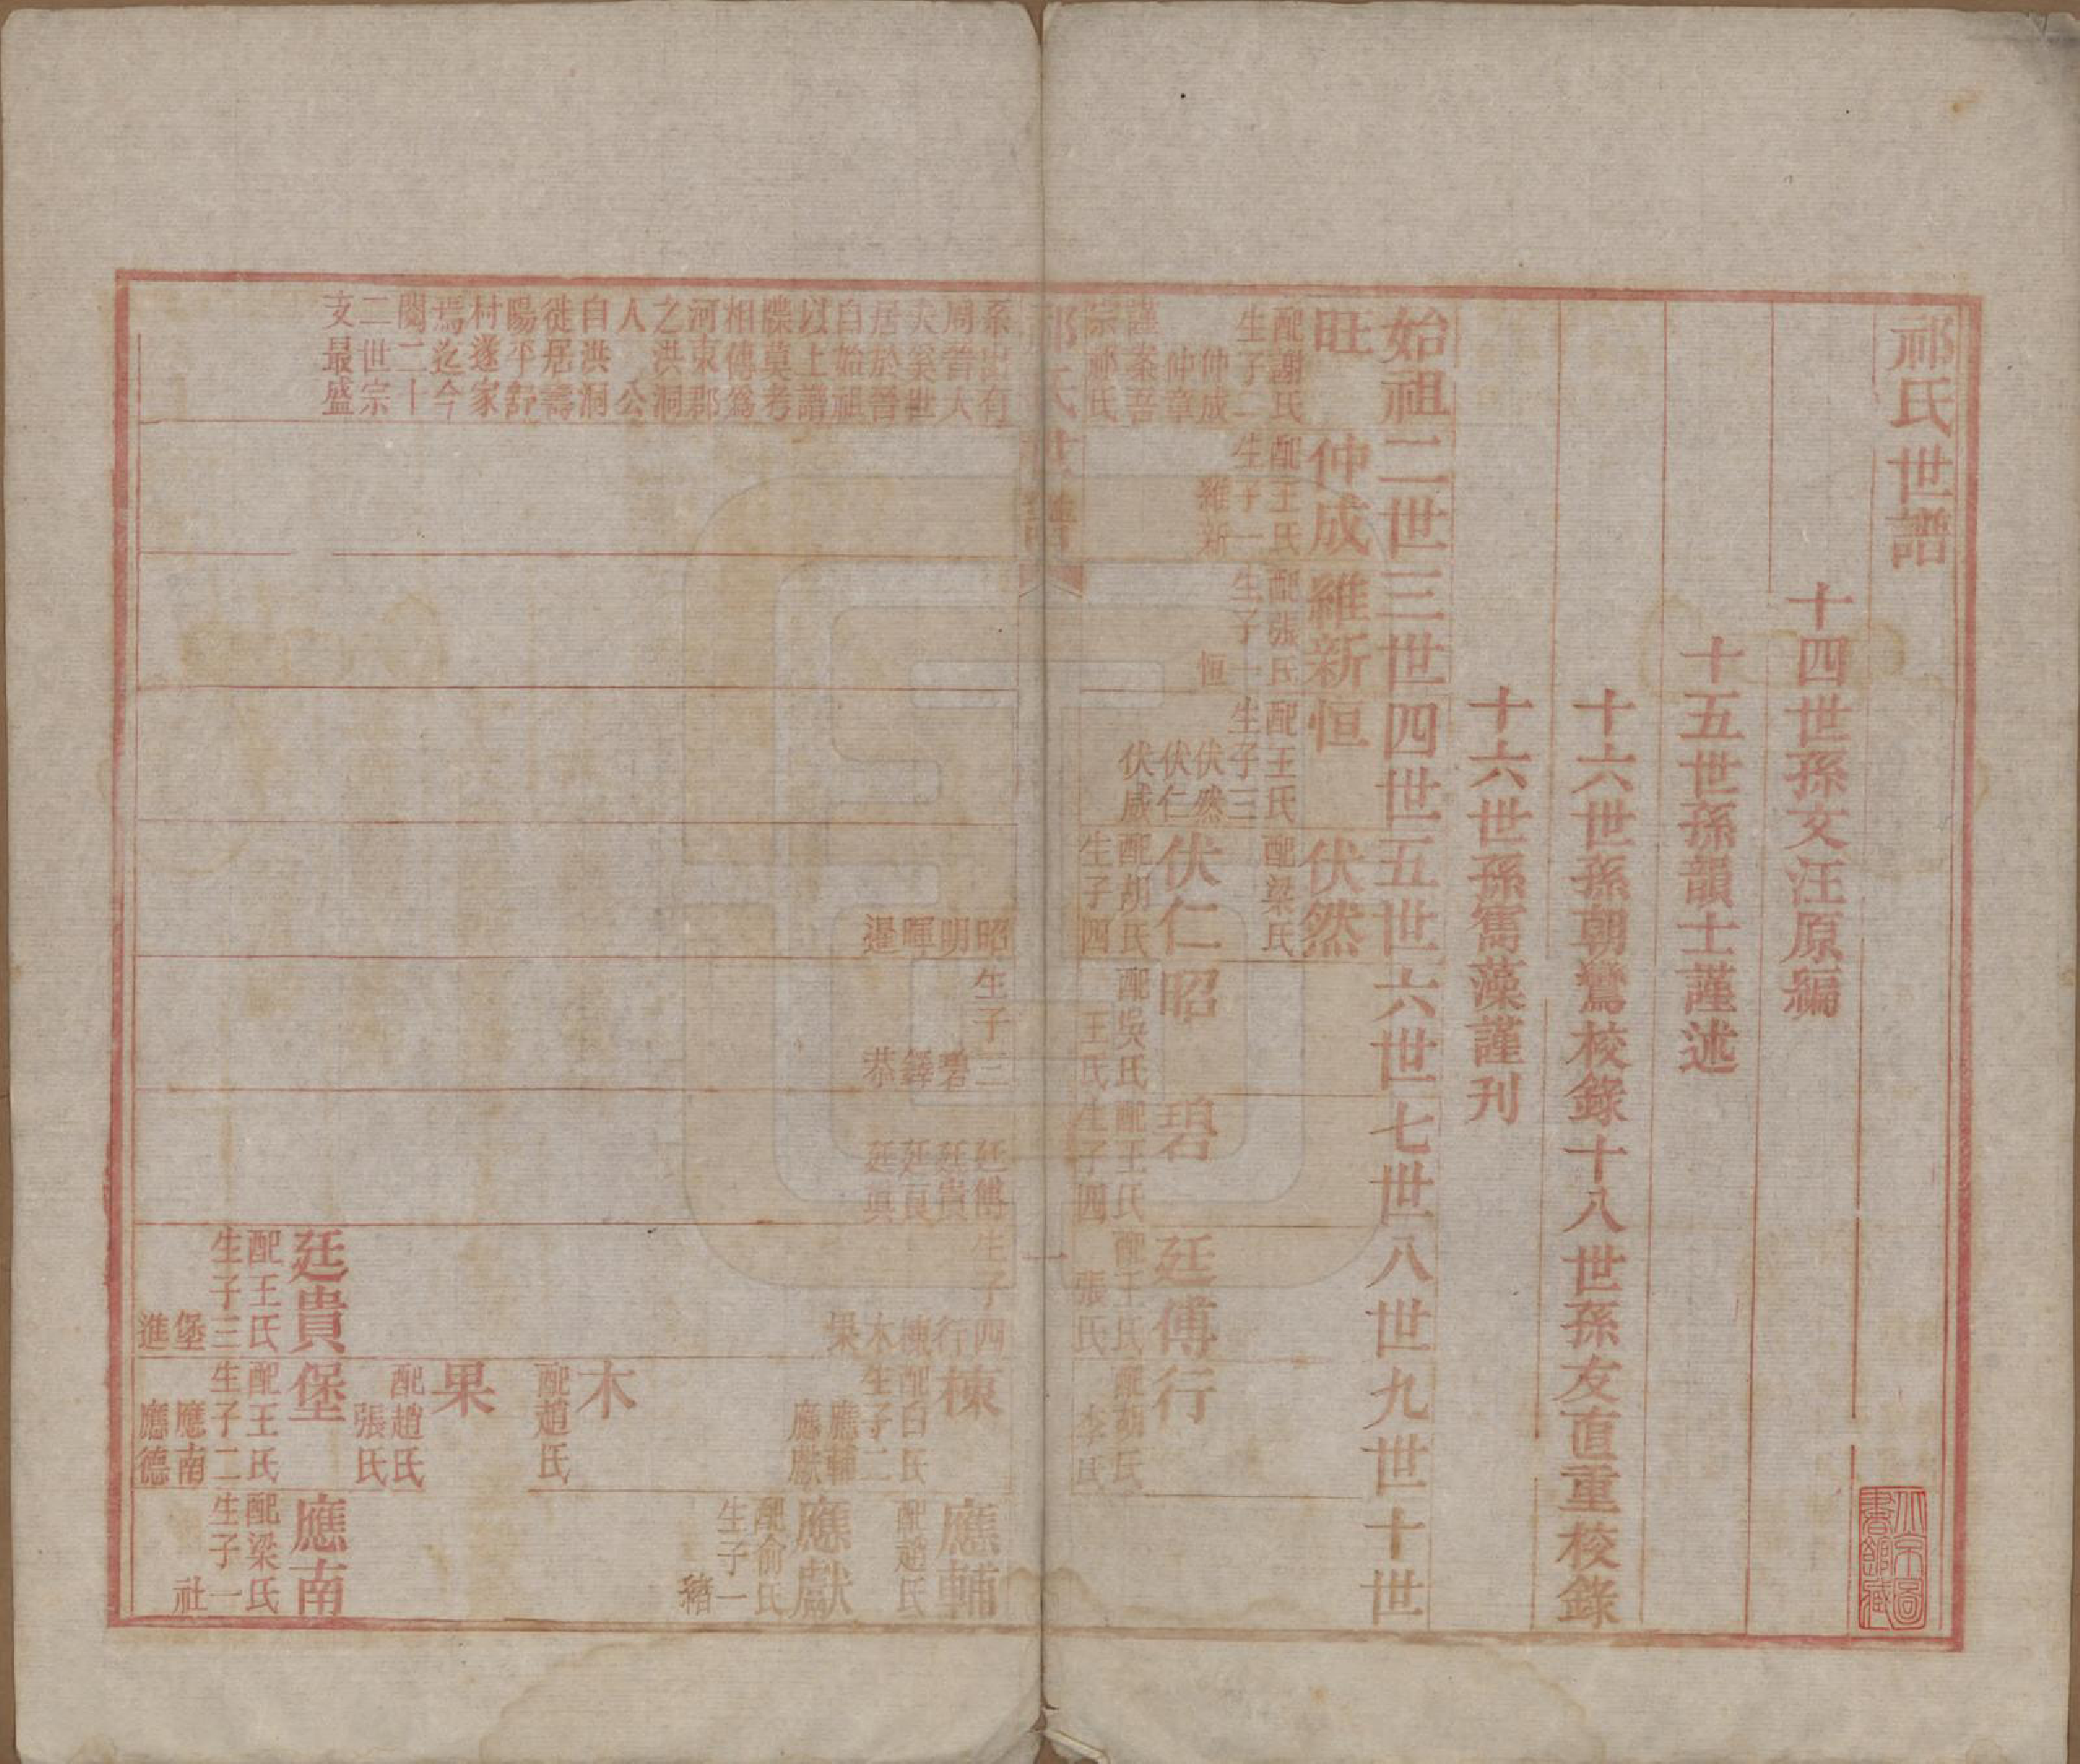 祁氏世譜
十四世孫文汪原編
十五世孫韻士謹述
十六世孫朝鷟校錄十八世孫友直重校錄
十六世孫寯藻謹刊
始祖二世三世四世五世六世七世八世九世十世
旺
配謝氏
生子二
仲成
仲章
謹案吾
宗祁氏
系出有
周晉大
夫奚世
居於晉
自始祖
以上譜
牒莫考
相傳爲
河東郡
之洪洞
人公
自洪洞
徙居壽
陽平舒
村遂家
焉迄今
閱二十
二世宗
支最盛
仲成
配王氏
生子一
維新
維新
配張氏
生子一
恒
恒
配王氏
生子三
伏然
伏仁
伏威
伏然
配梁氏
伏仁
配胡氏
生子四
昭
明
暉
暹
昭
配吳氏
王氏
生子三
碧
鐸
恭
碧
配王氏
生子四
廷傅
廷貴
廷良
廷真
廷傅
配王氏
張氏
生子四
行
棟
木
果
行
李氏
棟
配白氏
生子二
應輔
應獻
應輔
配趙氏
應獻
配俞氏
生子一
木
配趙氏
果
配趙氏
張氏
廷貴
配王氏
生子三
堡
進
堡
配王氏
生子二
應南
應德
應南
配梁氏
生子一
社
祁氏世譜
一